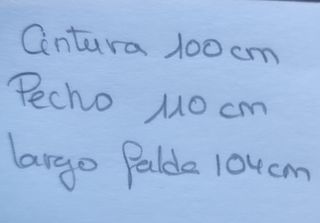 Cintura 100 cm
Pecho 110 cm
largo falda 104 cm